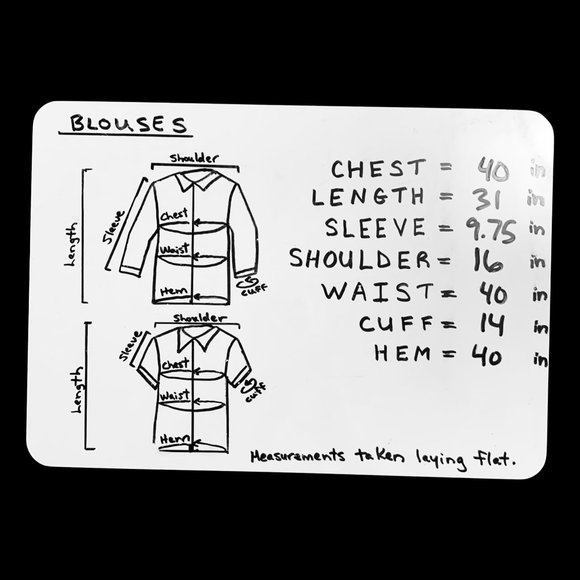 BLOUSES
Shoulder
Sleeve
Length
Chest
Waist
Hem
cuff
Shoulder
Sleeve
Length
Chest
Waist
Hem
cuff
CHEST = 40 in
LENGTH = 31 in
SLEEVE = 9.75 in
SHOULDER = 16 in
WAIST = 40 in
CUFF = 14 in
HEM = 40 in
Measurements taken laying flat.